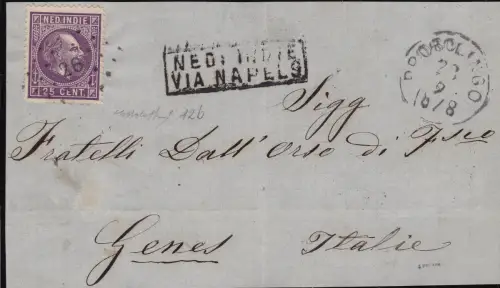 NED. INDIE
26
25 CENT.
NED: INDIE
VIA NAPELS
PROBOLINGGO
23
9
1878
12b
Sigg
Fratelli Dall'Orso di Fsco
Genes Italie